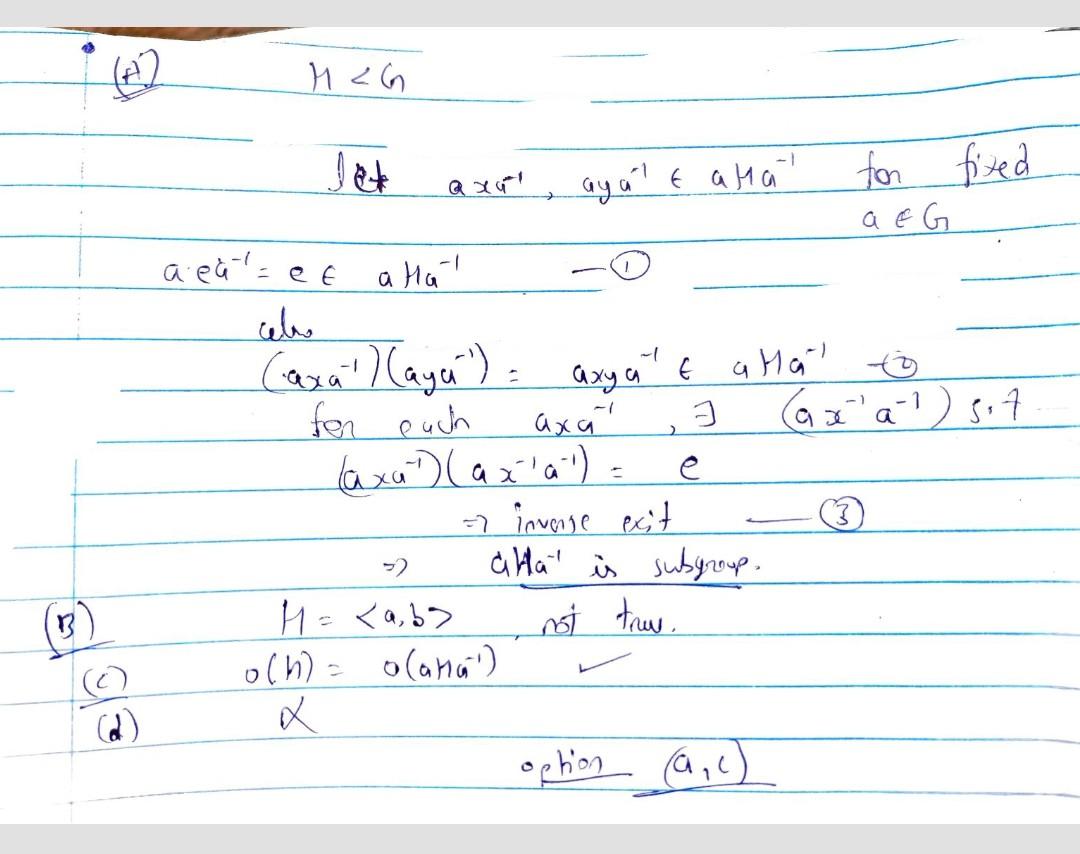 (A) H < G
let axa⁻¹, aya⁻¹ ∈ aHa⁻¹ for fixed
a ∈ G
a·ea⁻¹ = e ∈ aHa⁻¹ —①
also
(axa⁻¹)(aya⁻¹) = axya⁻¹ ∈ aHa⁻¹ —②
for each axa⁻¹, ∃ (ax⁻¹a⁻¹) s.t
(axa⁻¹)(ax⁻¹a⁻¹) = e
⇒ inverse exit —③
⇒ aHa⁻¹ is subgroup.
(B) H = <a,b>, not true.
(c) o(h) = o(aHa⁻¹) ✓
(d) ×
option (a,c)